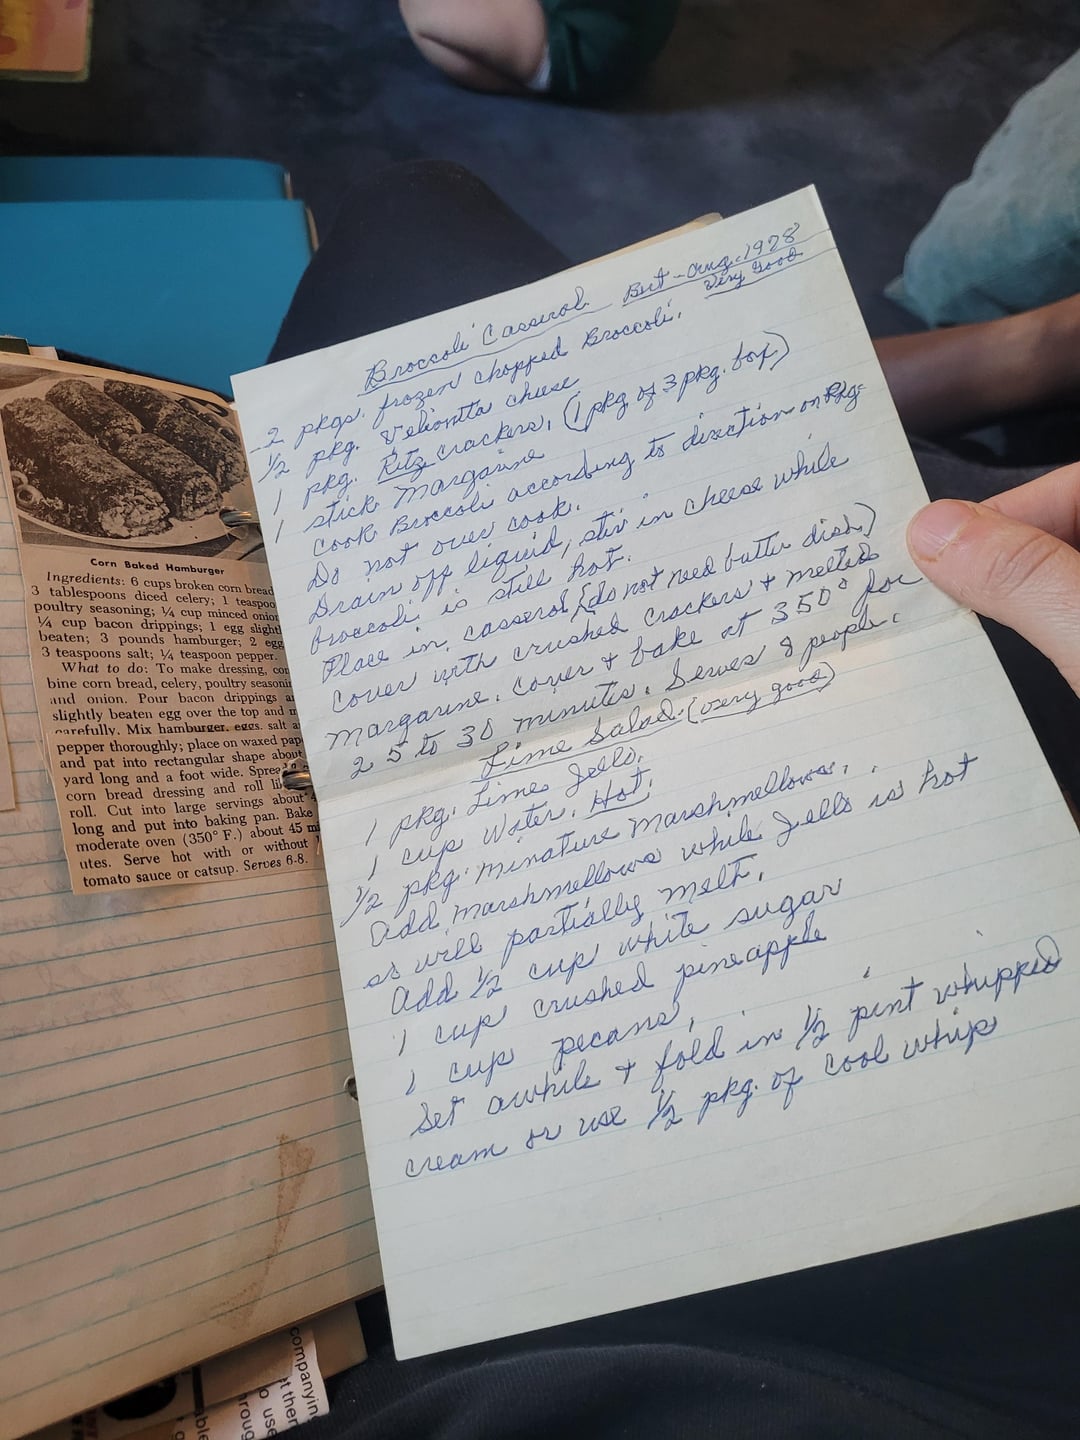 Broccoli Casserol Bert - Aug. 1978
Very Good
2 pkgs. frozen chopped Broccoli.
1/2 pkg. Velvontta cheese
1 pkg. Ritz crackers, (1 pkg of 3 pkg. box)
1 stick Margarine
Cook Broccoli according to direction on Pkg.
Do not over cook.
Drain off liquid, stir in cheese while
broccoli is still hot.
Place in casserol (do not need butter dish)
Cover with crushed crackers + melted
margarine. Cover + bake at 350° for
25 to 30 minutes. Serves 8 people.
Lime Salad. (very good)
1 pkg. Lime Jello.
1 cup Water. Hot.
1/2 pkg. minature Marshmellows.
Add Marshmellows while Jello is hot
so will partially melt.
Add 1/2 cup white sugar
1 cup crushed pineapple
1 cup pecans,
Set awhile + fold in 1/2 pint whipped
cream or use 1/2 pkg. of cool whip
Corn Baked Hamburger
Ingredients: 6 cups broken corn bread
3 tablespoons diced celery; 1 teaspoo
poultry seasoning; 1/4 cup minced onion
1/4 cup bacon drippings; 1 egg slight
beaten; 3 pounds hamburger; 2 egg
3 teaspoons salt; 1/4 teaspoon pepper.
What to do: To make dressing, com
bine corn bread, celery, poultry seasoni
and onion. Pour bacon drippings a
slightly beaten egg over the top and m
carefully. Mix hamburger, eggs, salt a
pepper thoroughly; place on waxed pap
and pat into rectangular shape about
yard long and a foot wide. Sprea
corn bread dressing and roll li
roll. Cut into large servings about 4
long and put into baking pan. Bake
moderate oven (350° F.) about 45 mi
utes. Serve hot with or without
tomato sauce or catsup. Serves 6-8.
companyin
et then
o use
hroug
able